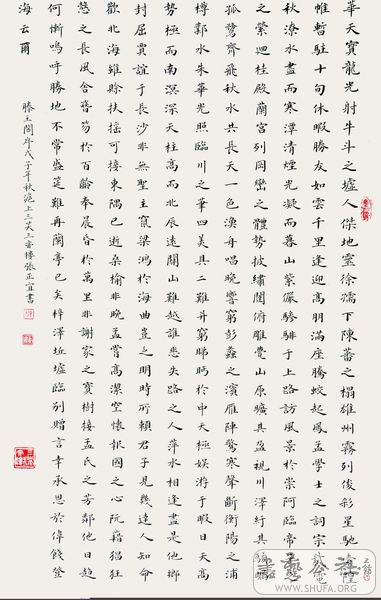 華天寶龍光射牛斗之墟人傑地靈徐孺下陳蕃之榻雄州霧列俊彩星馳隍
帷暫駐十旬休暇勝友如雲千里逢迎高朋滿座騰蛟起鳳孟學士之詞宗紫電
秋潦水盡而寒潭清煙光凝而暮山紫儼驂騑于上路訪風景於崇阿臨帝子
之縈迴桂殿蘭宮列岡巒之體勢披繡闥俯雕甍山原曠其盈視川澤紆其
孤鶩齊飛秋水共長天一色漁舟唱晚響窮彭蠡之濱雁陣驚寒聲斷衡陽之浦
樽鄴水朱華光照臨川之筆四美具二難并窮睇眄於中天極娛游于暇日天高
勢極而南溟深天柱高而北辰遠關山難越誰悲失路之人萍水相逢盡是他鄉
封屈賈誼于長沙非無聖主竄梁鴻於海曲豈乏明時所賴君子見幾達人知命
歡北海雖賒扶搖可接東隅已逝桑榆非晚孟嘗高潔空懷報國之心阮籍猖狂
愨之長風舍簪笏於百齡奉晨昏於萬里非謝家之寶樹接孟氏之芳鄰他日趨
何慚嗚呼勝地不常盛筵難再蘭亭已矣梓澤坵墟臨別贈言幸承恩於偉餞登
海云爾
滕王閣序戊子年秋滬上三笑三樓張正宜書
WWW.SHUFA.ORG